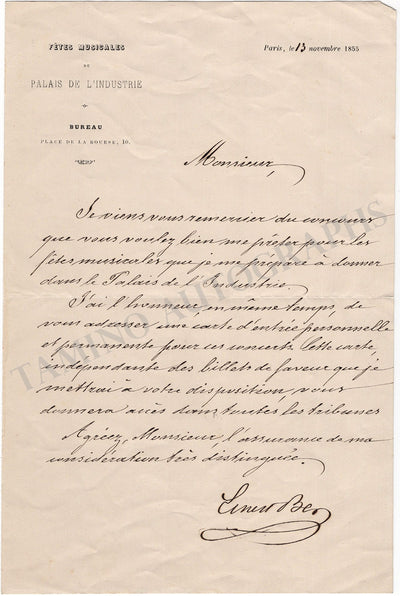 FÊTES MUSICALES
DU
PALAIS DE L'INDUSTRIE
BUREAU
PLACE DE LA BOURSE, 10.
Paris, le 13 novembre 1855
Monsieur,
Je viens vous remercier du concours
que vous voulez bien me prêter pour les
fêtes musicales que je me prépare à donner
dans le Palais de l'Industrie.
J'ai l'honneur, en même temps, de
vous adresser une carte d'entrée personnelle
et permanente pour ces concerts. Cette carte,
indépendante des billets de faveur que je
mettrai à votre disposition, vous
donnera accès dans toutes les tribunes
Agréez, Monsieur, l'assurance de ma
considération très distinguée.
TAMINO AUTOGRAPHS